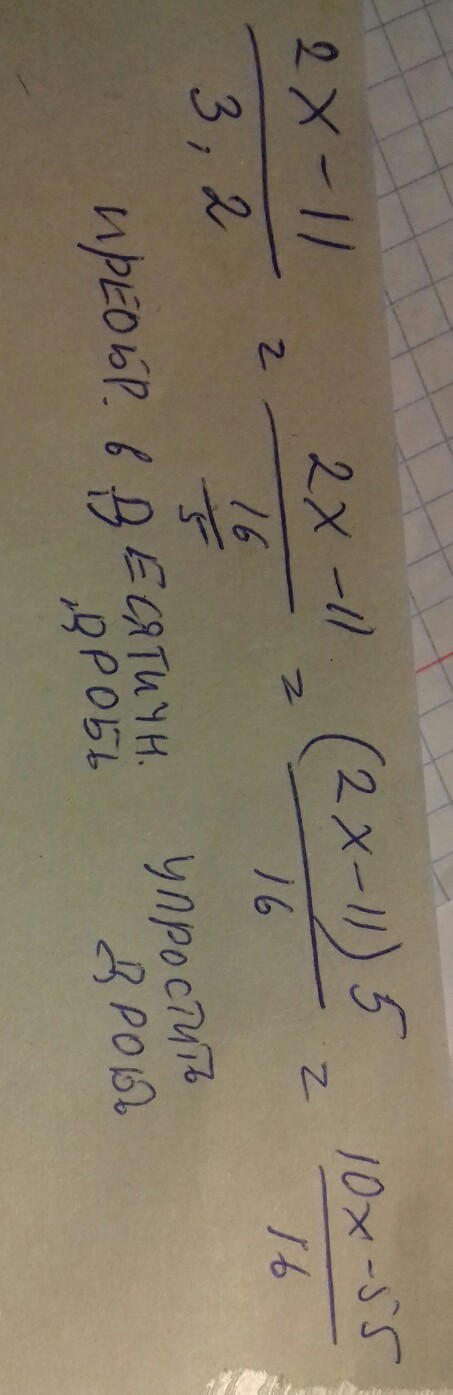 (2x-11)/(3,2) = (2x-11)/(16/5) = ((2x-11)5)/16 = (10x-55)/16
ПРЕОБР. в ДЕСЯТИЧН. УПРОСТИТЬ
ДРОБЬ ДРОБЬ